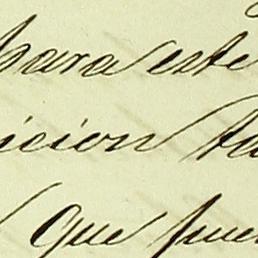 para este
icion ta
que pue